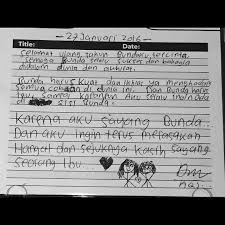 - 27 Januari 2016 -
Title: Date:
Selamat ulang tahun Bundaku tercinta,
semoga Bunda selalu sukses dan bahagia
didalam dunia dan akhirat.
Bunda harus kuat dan ikhlas ya menghadapi
semua di dunia ini. Dan Bunda harus
tau, sampai kapanpun Aku selalu ingin ada
di sisi Bunda.
Karena aku sayang Bunda..
Dan aku ingin terus merasakan
Hangat dan sejuknya kasih sayang
seorang Ibu..